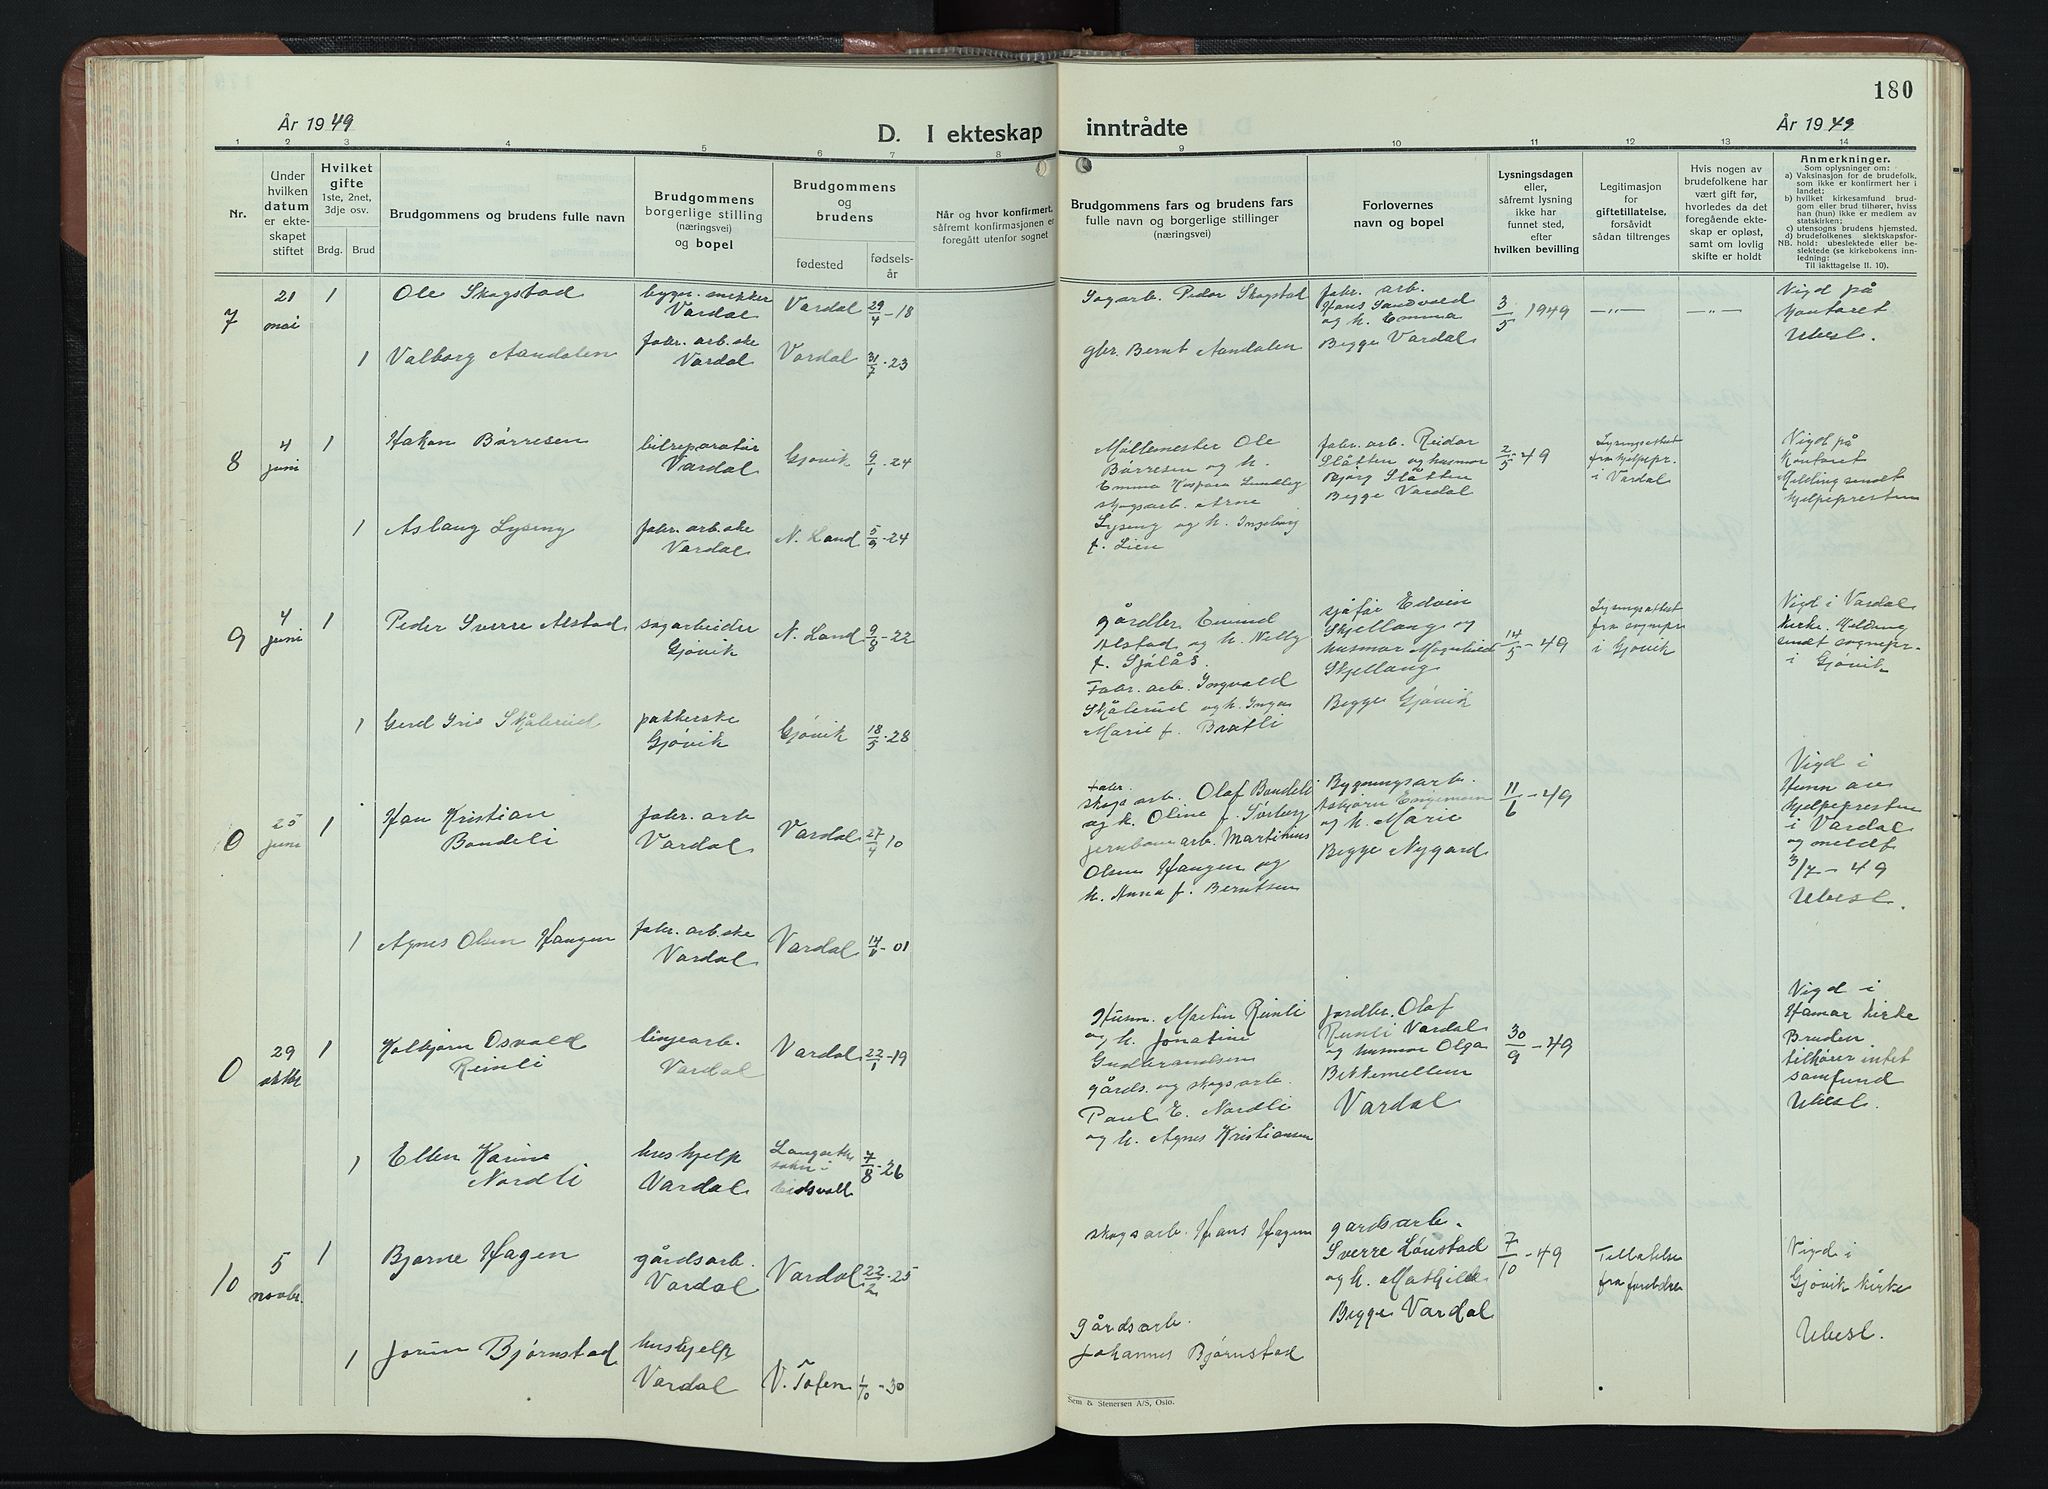 180
År 1949
D. I ekteskap
inntrådte
År 1949
1 2 3 4 5 6 7 8 9 10 11 12 13 14
Nr.
Under
hvilken
datum
er ekte-
skapet
stiftet
Hvilket
gifte
1ste, 2net,
3dje osv.
Brdg. Brud
Brudgommens og brudens fulle navn
Brudgommens
borgerlige stilling
(næringsvei)
og bopel
Brudgommens
og
brudens
fødested
fødsels-
år
Når og hvor konfirmert,
såfremt konfirmasjonen er
foregått utenfor sognet
Brudgommens fars og brudens fars
fulle navn og borgerlige stillinger
(næringsvei)
Forlovernes
navn og bopel
Lysningsdagen
eller,
såfremt lysning
ikke har
funnet sted,
efter
hvilken bevilling
Legitimasjon
for
giftetillatelse,
forsåvidt
sådan tiltrenges
Hvis nogen av
brudefolkene har
vært gift før,
hvorledes da det
foregående ekte-
skap er opløst,
samt om lovlig
skifte er holdt
Anmerkninger.
Som oplysninger om:
a) Vaksinasjon for de brudefolk,
som ikke er konfirmert her i
landet;
b) hvilket kirkesamfund brud-
gom eller brud tilhører, hviss
han (hun) ikke er medlem av
statskirken;
c) utensogns brudens hjemsted.
d) brudefolkenes slektskapsfor-
NB. hold: ubeslektede eller be-
slektede (se kirkebokens inn-
ledning:
Til iakttagelse II. 10).
7
21
mai
1
Ole Skogstad
bygn. snekker
Vardal
Vardal 29/4 - 18
Sagarb. Peder Skogstad
fabr. arb.
Hans Sandvold
og h. Emma
Begge Vardal
3/5 1949
—"—
—"—
Vigd på
kontoret
Ubesl.
1
Valborg Aandalen
fabr. arb.ske
Vardal
Vardal 31/7 - 23
gbr. Bernt Aandalen
8
4
juni
1
Håkon Børresen
bilreparatør
Vardal
Gjøvik 9/1 - 24
Møllemester Ole
Børresen og h.
Emma Kaspara Lundby
fabr. arb. Reidar
Slåtten og husmor
Bjørg Slåtten
Begge Vardal
2/5 - 49
Lysningsattest
fra hjelpepr.
i Vardal
Vigd på
Kontoret
Melding sendt
hjelpepresten
1
Aslaug Lyseng
fabr. arb.ske
Vardal
N. Land 5/9 - 24
skogsarb. Arne
Lyseng og h. Ingeborg
f. Lien
9
4
juni
1
Peder Sverre Alstad
sagarbeider
Gjøvik
N. Land 9/8 - 22
gårdbr. Eivind
Alstad og h. Nelly
f. Sjølås.
sjåfør Edvin
Skjellang og
husmor Magnhild
Skjellang
Begge Gjøvik
14/5 - 49
Lysningsattest
fra sognepr.
i Gjøvik
Vigd i Vardal
kirke. Melding
sendt sognepr.
i Gjøvik
1
Gerd Iris Skålerud
pakkerske
Gjøvik
Gjøvik 18/5 - 28
Fabr. arb. Ingvald
Skålerud og h. Inga
Marie f. Bratli
0
25
juni
1
Han Kristian
Bondeli
fabr. arb
Vardal
Vardal 27/4 10
fabr.
skogs arb. Olaf Bondeli
og h. Oline f. Torberg
Bygningsarb.
Asbjørn Engemoen
og h. Marie
Begge Nygard
11/6 - 49
Vigd i
Hunn av
hjelpepresten
i Vardal
og meldt
3/7 - 49
Ubesl.
1
Agnes Olsen Haugen
fabr. arb.ske
Vardal
Vardal 14/6 - 01
jernbanearb. Martinius
Olsen Haugen og
h. Anna f. Berntsen
0
29
oktbr
1
Kolbjørn Osvald
Reinli
linjearb.
Vardal
Vardal 22/1 - 19
Husm. Martin Reinli
og h. Jonatine
Gudbrandsen
jordbr. Olaf
Reinli Vardal
og husmor Olga
Bekkemellem
Vardal
30/9 - 49
Vigd i
Hamar kirke
Bruden
tilhører intet
samfund
Ubesl.
1
Ellen Karine
Nordli
hushjelp
Vardal
Langseth
sokn i
Eidsvoll
7/8 - 26
gårds. og skogsarb.
Paul E. Nordli
og h. Agnes Kristiansen
10
5
novbr.
1
Bjarne Hagen
gårdsarb.
Vardal
Vardal 22/2 - 25
skogsarb. Hans Hagen
gardsarb.
Sverre Lønstad
og h. Mathilde
Begge Vardal
7/10 - 49
Tillatelse
fra foreldre
Vigd i
Gjøvik kirke
Ubesl.
1
Jorun Bjørnstad
hushjelp
Vardal
V. Toten 1/10 - 30
gårdsarb.
Johannes Bjørnstad
Sem & Stenersen A/S, Oslo.